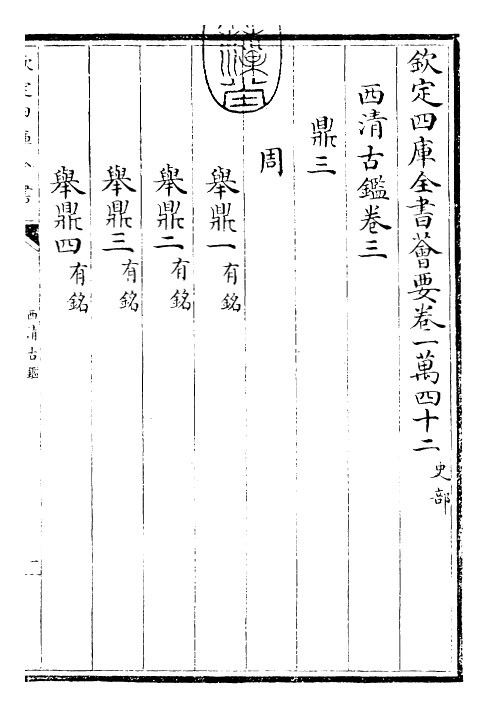 欽定四庫全書薈要卷一萬四十二史部
西清古鑑卷三
鼎三
周
舉鼎一有銘
舉鼎二有銘
舉鼎三有銘
舉鼎四有銘
西清古鑑